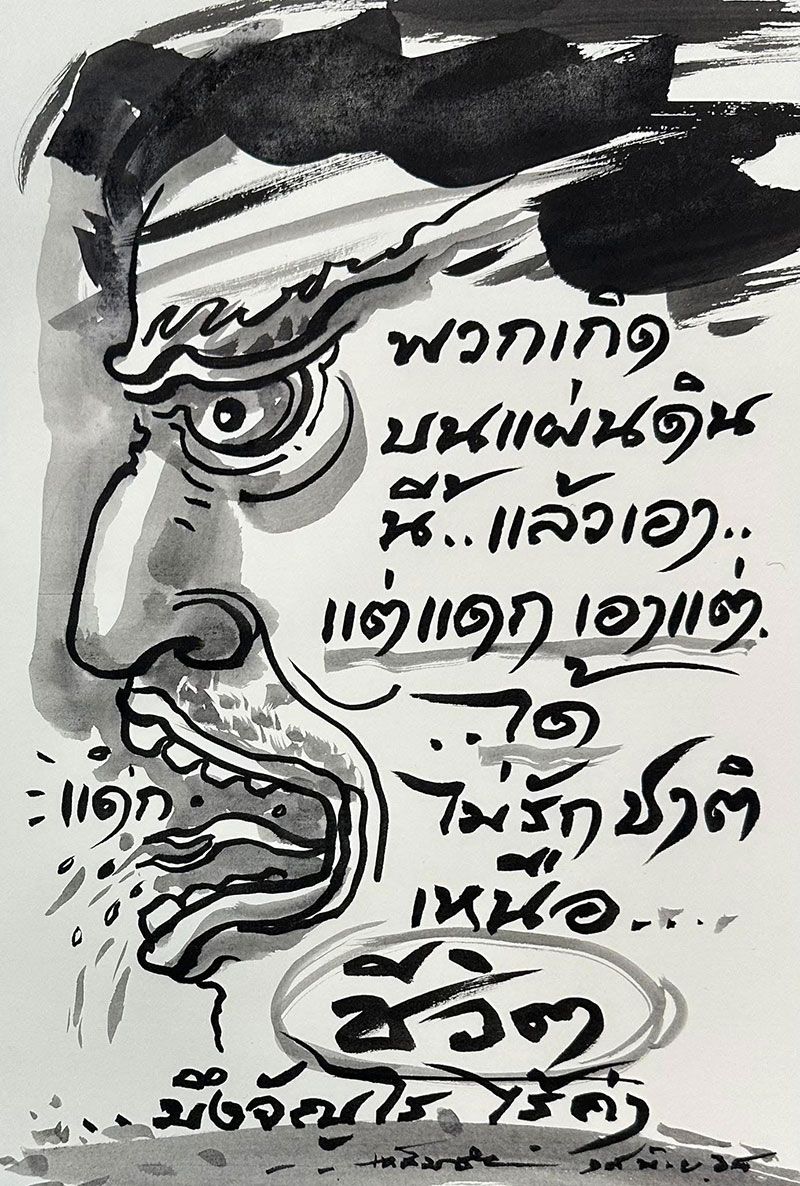 พวกเกิด
บนแผ่นดิน
นี้..แล้วเอา..
แต่แดก เอาแต่.
..ได้
ไม่รักชาติ
เหนือ....
ชีวิต
มึงจัญไร ไร้ค่า
แด่ก